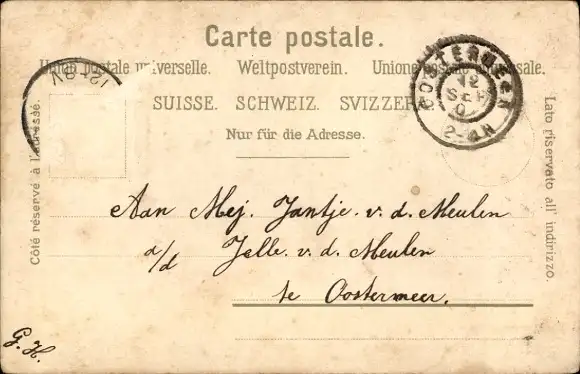 Carte postale.
Union postale universelle. Weltpostverein. Unione postale universale.
SUISSE. SCHWEIZ. SVIZZERA
Nur für die Adresse.
Côté réservé à l'adresse.
Lato riservato all' indirizzo.
OOSTERMEER
12
SEP
0
2-4N
12-8V
Aan Mej. Jantje v. d. Meulen
a/d Jelle v. d. Meulen
te Oostermeer.
G. H.